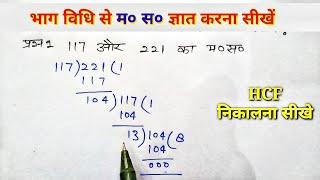 भाग विधि से म० स० ज्ञात करना सीखें
प्रश्न 1 117 और 221 का म०स०
117) 221 (1
117
104) 117 (1
104
13) 104 (8
104
000
HCF
निकालना सीखे